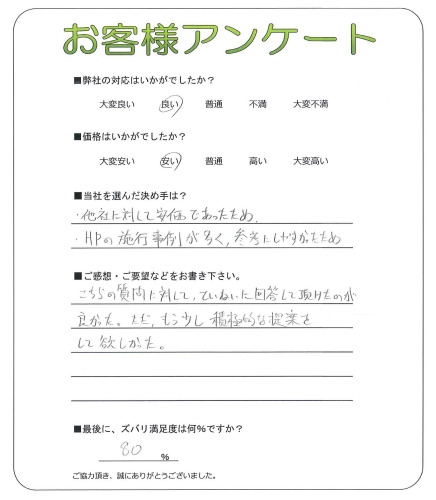 お客様アンケート
■弊社の対応はいかがでしたか?
大変良い 良い 普通 不満 大変不満
■価格はいかがでしたか?
大変安い 安い 普通 高い 大変高い
■当社を選んだ決め手は?
・他社に対して安価であったため、
・HPの施行事例が多く、参考にしやすかったため
■ご感想・ご要望などをお書き下さい。
こちらの質問に対して、ていねいに回答して頂けたのが
良かった。ただ、もう少し積極的な提案を
して欲しかった。
■最後に、ズバリ満足度は何%ですか?
80 %
ご協力頂き、誠にありがとうございました。